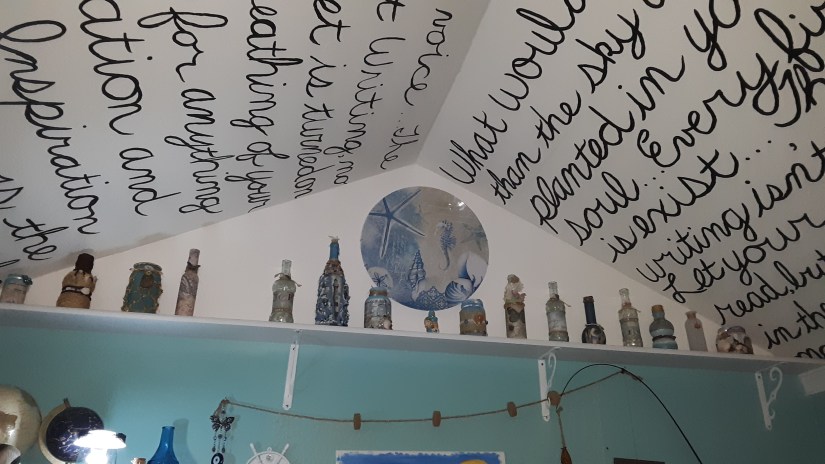 voice... the
t writing, no
et is turned on
eathing of your
for anything
ation and
Inspiration
s, the
What would
than the sky
planted in yo
soul... Every fi
is exist... Th
writing isn't
Let your
read, but
in the